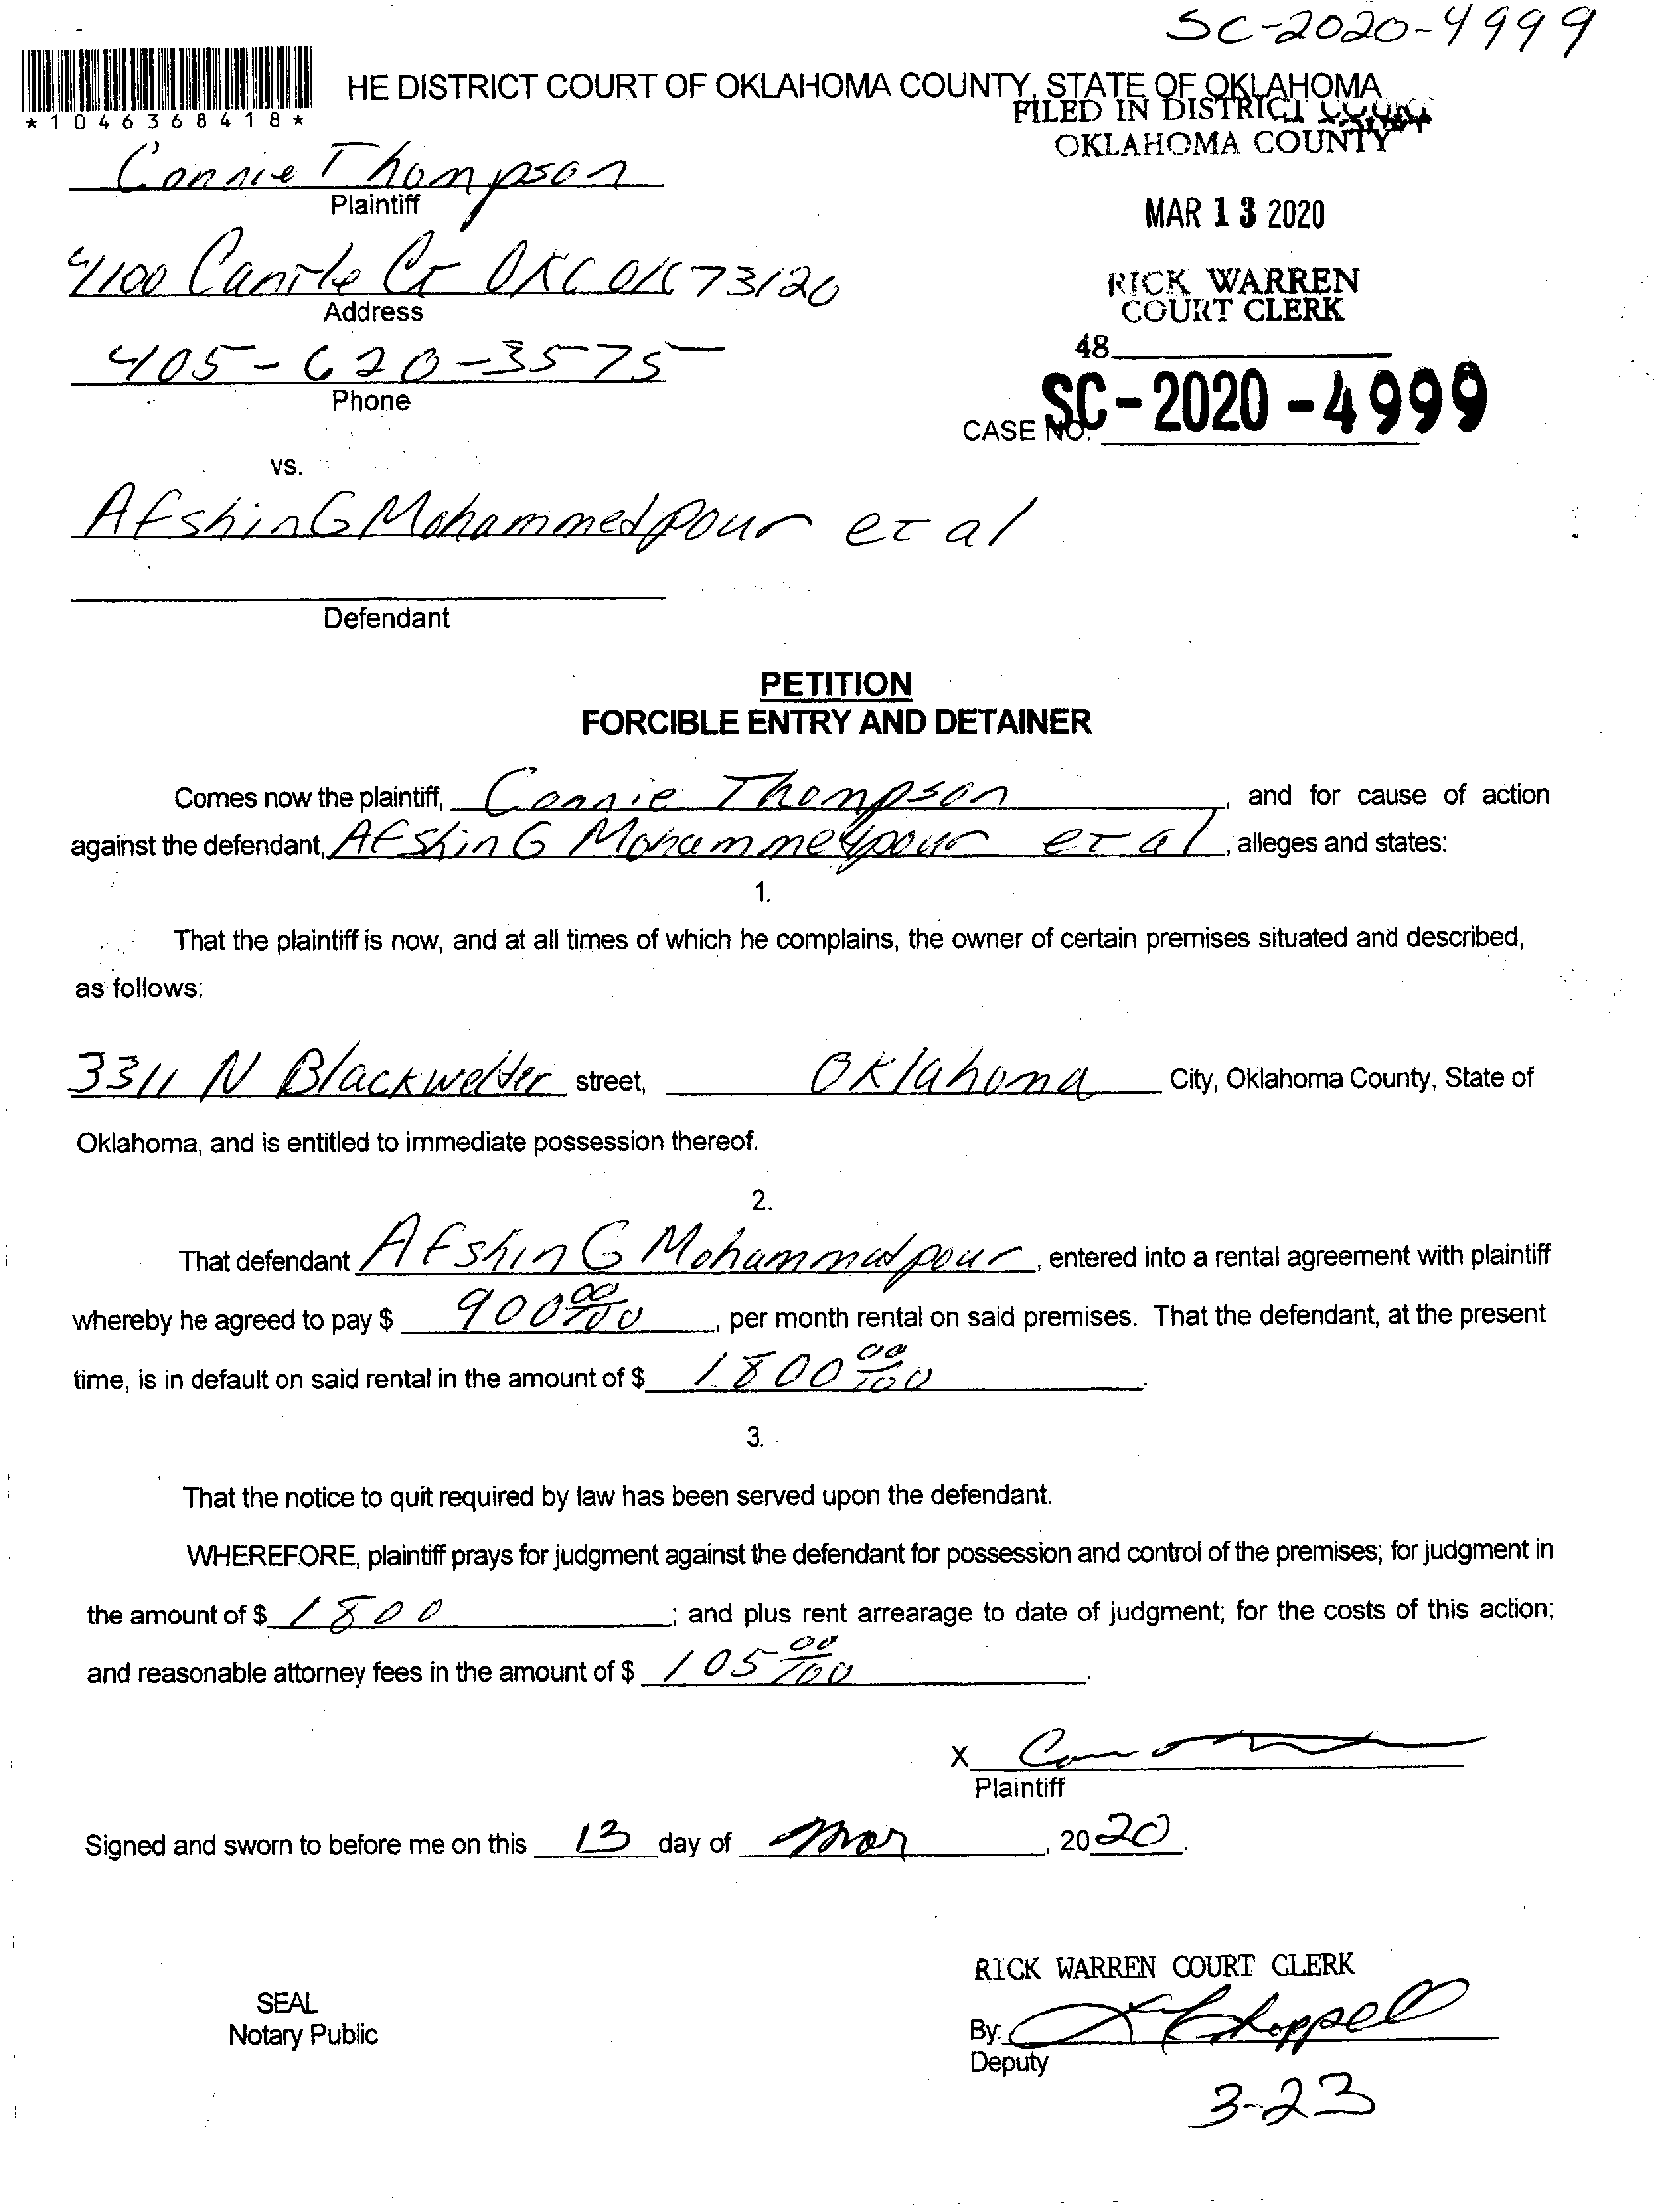 SC-2020-4999
HE DISTRICT COURT OF OKLAHOMA COUNTY, STATE OF OKLAHOMA
*1046368418*
FILED IN DISTRICT COURT
OKLAHOMA COUNTY
Connie Thompson
Plaintiff
MAR 13 2020
4100 Cantle Ct OKC OK 73120
Address
RICK WARREN
COURT CLERK
405-620-3575
Phone
48
CASE NO. SC-2020-4999
vs.
Afshin G Mohammedpour et al
Defendant
PETITION
FORCIBLE ENTRY AND DETAINER
Comes now the plaintiff, Connie Thompson, and for cause of action
against the defendant, Afshin G Mohammedpour et al, alleges and states:
1.
That the plaintiff is now, and at all times of which he complains, the owner of certain premises situated and described,
as follows:
3311 N Blackwelder street, Oklahoma City, Oklahoma County, State of
Oklahoma, and is entitled to immediate possession thereof.
2.
That defendant Afshin G Mohammadpour, entered into a rental agreement with plaintiff
whereby he agreed to pay $ 900 00/100, per month rental on said premises. That the defendant, at the present
time, is in default on said rental in the amount of $ 1800 00/100.
3.
That the notice to quit required by law has been served upon the defendant.
WHEREFORE, plaintiff prays for judgment against the defendant for possession and control of the premises; for judgment in
the amount of $ 1800; and plus rent arrearage to date of judgment; for the costs of this action;
and reasonable attorney fees in the amount of $ 105 00/100.
X
Plaintiff
Signed and sworn to before me on this 13 day of Mar, 2020.
RICK WARREN COURT CLERK
SEAL
Notary Public
By: Chappell
Deputy
3-23